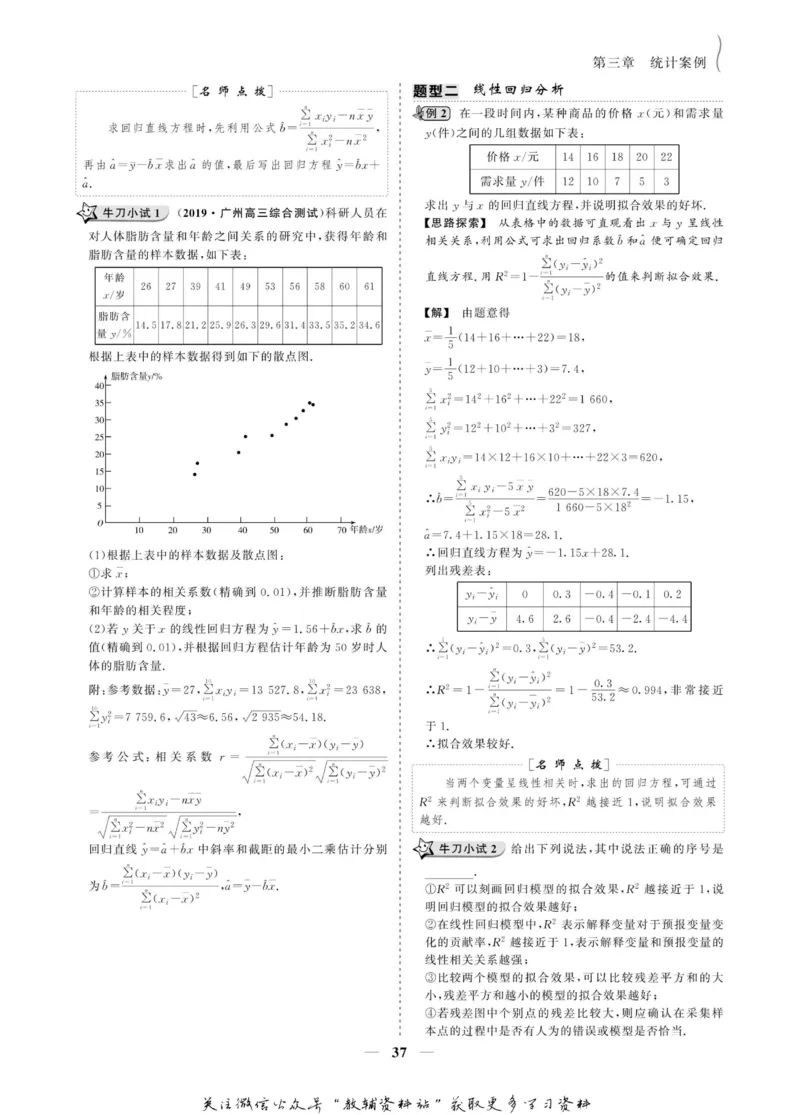 第三章 统计案例
[名师点拨]
求回归直线方程时,先利用公式b̂=(∑_{i=1}^{n}x_iy_i-nx̄ȳ)/(∑_{i=1}^{n}x_i²-nx̄²),
再由â=ȳ-b̂x̄求出â的值,最后写出回归方程ŷ=b̂x+
â.
牛刀小试1 (2019·广州高三综合测试)科研人员在
对人体脂肪含量和年龄之间关系的研究中,获得年龄和
脂肪含量的样本数据,如下表:
年龄x/岁 26 27 39 41 49 53 56 58 60 61
脂肪含量y/% 14.5 17.8 21.2 25.9 26.3 29.6 31.4 33.5 35.2 34.6
根据上表中的样本数据得到如下的散点图.
脂肪含量y/%
40
35
30
25
20
15
10
5
O 10 20 30 40 50 60 70 年龄x/岁
(1)根据上表中的样本数据及散点图:
①求x̄;
②计算样本的相关系数(精确到0.01),并推断脂肪含量
和年龄的相关程度;
(2)若y关于x的线性回归方程为ŷ=1.56+b̂x,求b̂的
值(精确到0.01),并根据回归方程估计年龄为50岁时人
体的脂肪含量.
附:参考数据:ȳ=27,∑_{i=1}^{10}x_iy_i=13 527.8,∑_{i=1}^{10}x_i²=23 638,
∑_{i=1}^{10}y_i²=7 759.6,√43≈6.56,√2 935≈54.18.
参考公式:相关系数r=(∑_{i=1}^{n}(x_i-x̄)(y_i-ȳ))/(√(∑_{i=1}^{n}(x_i-x̄)²)√(∑_{i=1}^{n}(y_i-ȳ)²))
=(∑_{i=1}^{n}x_iy_i-nx̄ȳ)/(√(∑_{i=1}^{n}x_i²-nx̄²)√(∑_{i=1}^{n}y_i²-nȳ²)),
回归直线ŷ=â+b̂x中斜率和截距的最小二乘估计分别
为b̂=(∑_{i=1}^{n}(x_i-x̄)(y_i-ȳ))/(∑_{i=1}^{n}(x_i-x̄)²),â=ȳ-b̂x̄.
题型二 线性回归分析
例2 在一段时间内,某种商品的价格x(元)和需求量
y(件)之间的几组数据如下表:
价格x/元 14 16 18 20 22
需求量y/件 12 10 7 5 3
求出y与x的回归直线方程,并说明拟合效果的好坏.
【思路探索】 从表格中的数据可直观看出x与y呈线性
相关关系,利用公式可求出回归系数b̂和â便可确定回归
直线方程.用R²=1-(∑_{i=1}^{n}(y_i-ŷ_i)²)/(∑_{i=1}^{n}(y_i-ȳ)²)的值来判断拟合效果.
【解】 由题意得
x̄=1/5(14+16+…+22)=18,
ȳ=1/5(12+10+…+3)=7.4,
∑_{i=1}^{5}x_i²=14²+16²+…+22²=1 660,
∑_{i=1}^{5}y_i²=12²+10²+…+3²=327,
∑_{i=1}^{5}x_iy_i=14×12+16×10+…+22×3=620,
∴b̂=(∑_{i=1}^{5}x_iy_i-5x̄ȳ)/(∑_{i=1}^{5}x_i²-5x̄²)=(620-5×18×7.4)/(1 660-5×18²)=-1.15,
â=7.4+1.15×18=28.1.
∴回归直线方程为ŷ=-1.15x+28.1.
列出残差表:
y_i-ŷ_i 0 0.3 -0.4 -0.1 0.2
y_i-ȳ 4.6 2.6 -0.4 -2.4 -4.4
∴∑_{i=1}^{5}(y_i-ŷ_i)²=0.3,∑_{i=1}^{5}(y_i-ȳ)²=53.2.
∴R²=1-(∑_{i=1}^{n}(y_i-ŷ_i)²)/(∑_{i=1}^{n}(y_i-ȳ)²)=1-0.3/53.2≈0.994,非常接近
于1.
∴拟合效果较好.
[名师点拨]
当两个变量呈线性相关时,求出的回归方程,可通过
R²来判断拟合效果的好坏,R²越接近1,说明拟合效果
越好.
牛刀小试2 给出下列说法,其中说法正确的序号是
________.
①R²可以刻画回归模型的拟合效果,R²越接近于1,说
明回归模型的拟合效果越好;
②在线性回归模型中,R²表示解释变量对于预报变量变
化的贡献率,R²越接近于1,表示解释变量和预报变量的
线性相关关系越强;
③比较两个模型的拟合效果,可以比较残差平方和的大
小,残差平方和越小的模型的拟合效果越好;
④若残差图中个别点的残差比较大,则应确认在采集样
本点的过程中是否有人为的错误或模型是否恰当.
— 37 —
关注微信公众号“教辅资料站”获取更多学习资料